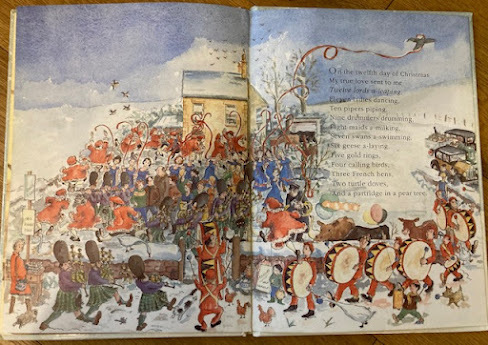 On the twelfth day of Christmas
My true love sent to me
Twelve lords a-leaping,
Eleven ladies dancing,
Ten pipers piping,
Nine drummers drumming,
Eight maids a-milking,
Seven swans a-swimming,
Six geese a-laying,
Five gold rings,
Four calling birds,
Three French hens,
Two turtle doves,
And a partridge in a pear tree.